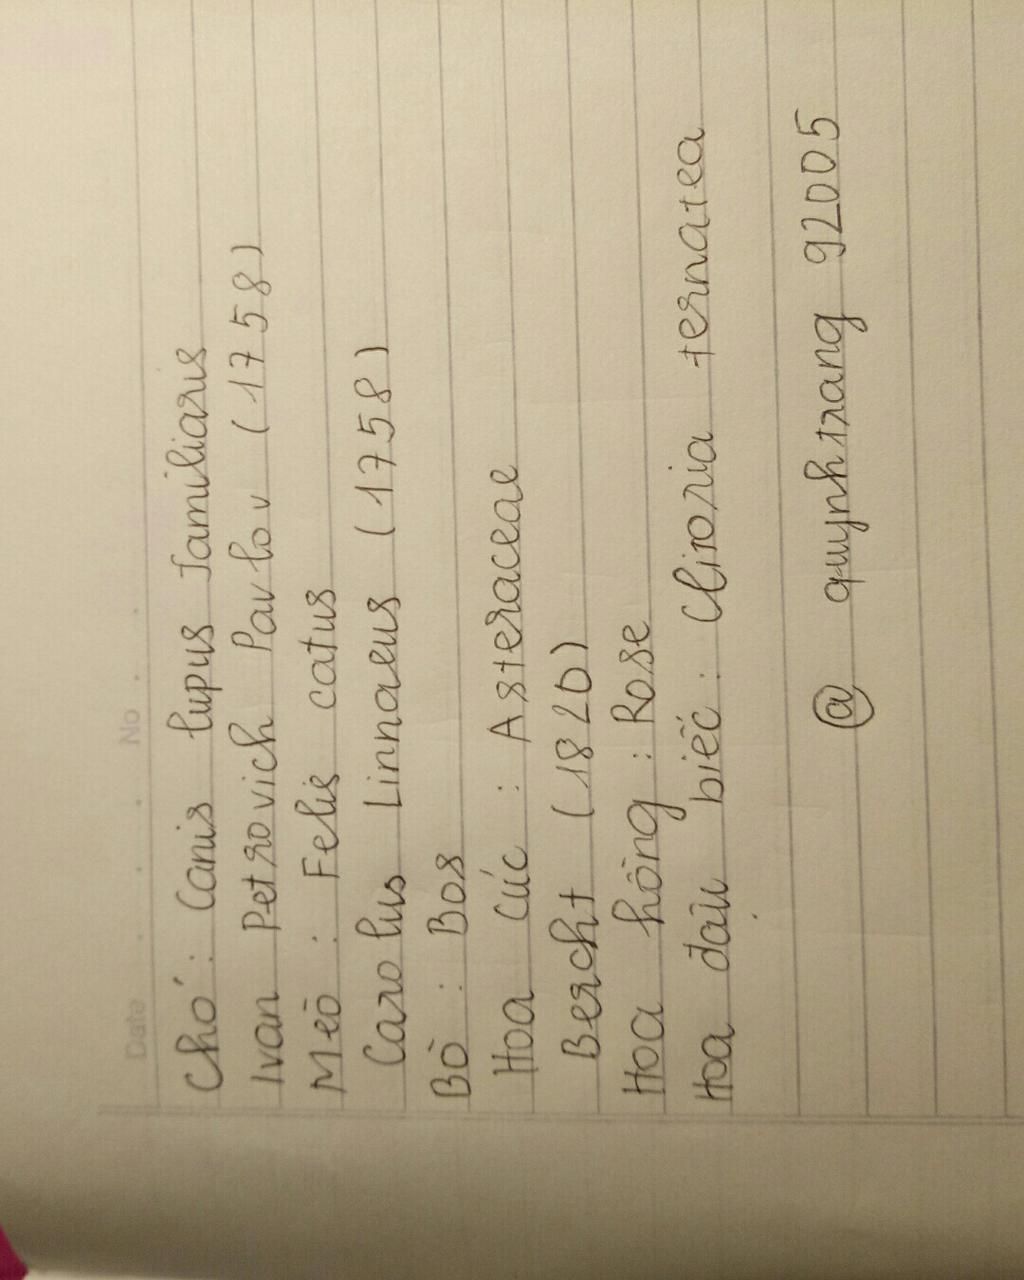 Date No
Chó: Canis lupus familiaris
Ivan Petrovich Pavlov (1758)
Mèo: Felis catus
Carolus Linnaeus (1758)
Bò: Bos
Hoa cúc: Asteraceae
Bercht (1820)
Hoa hồng: Rose
Hoa đậu biếc: Clitoria ternatea
@ quynhtrang 92005